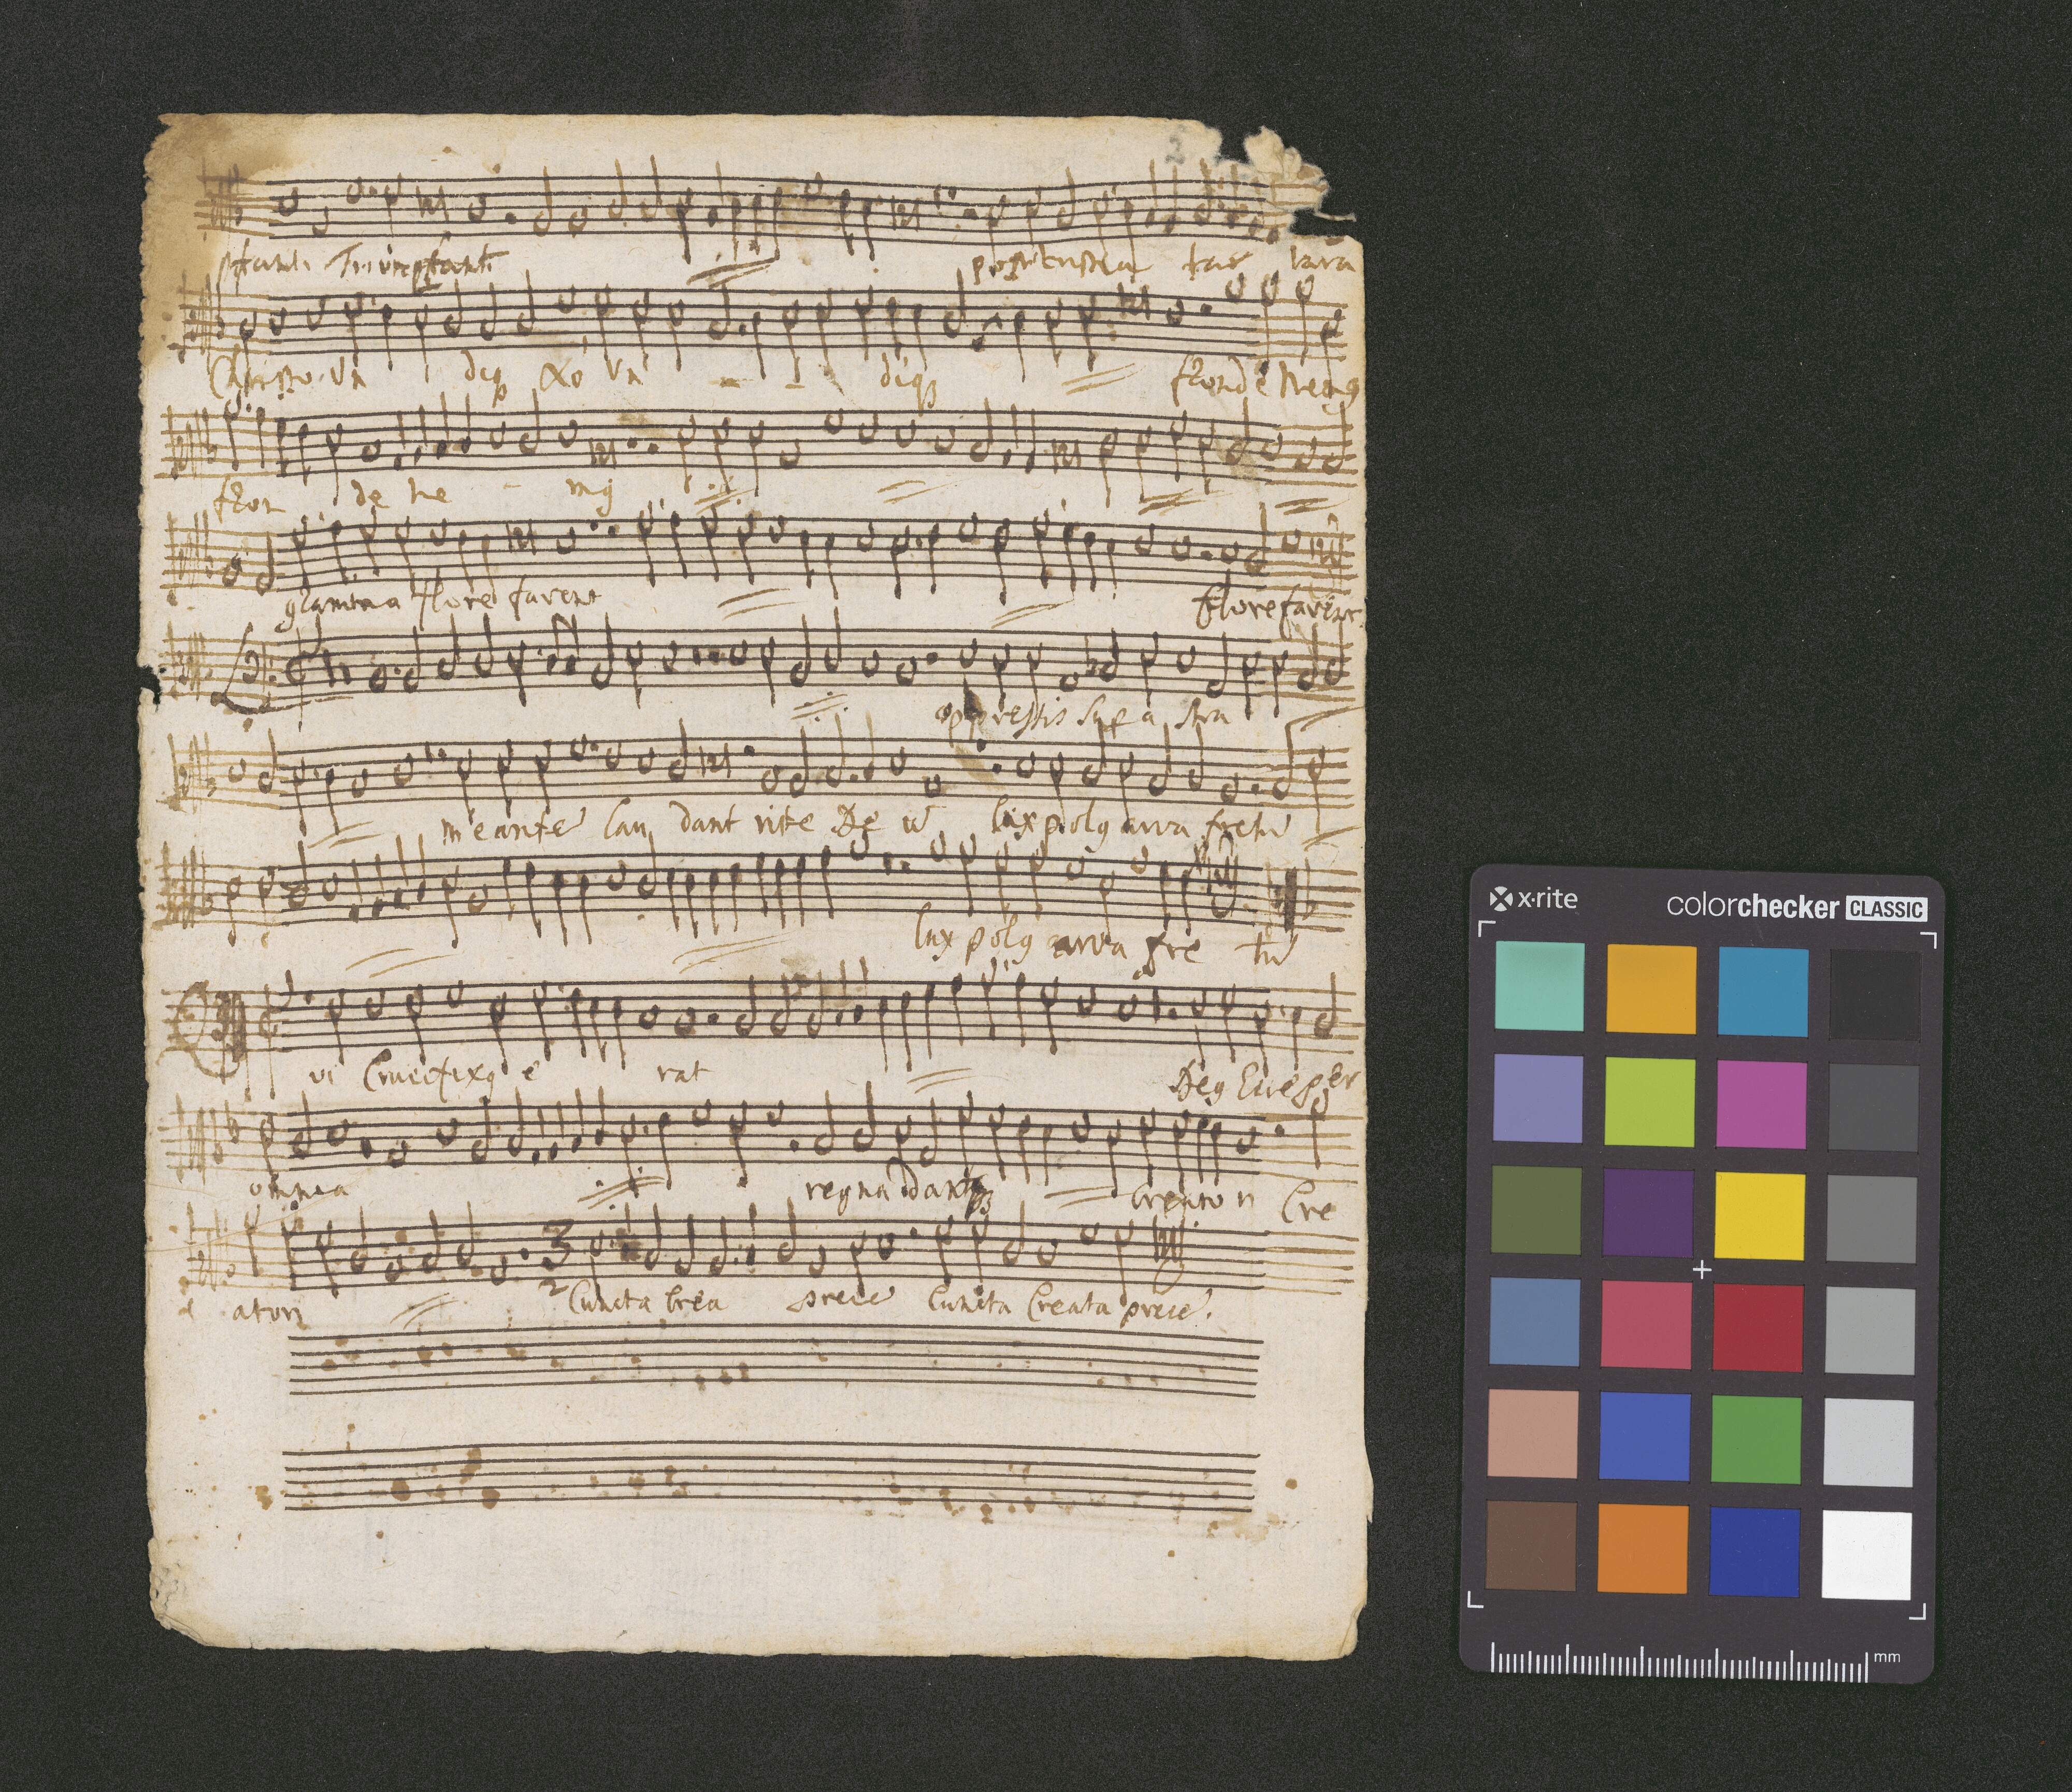 2
phanti Triumphanti post tristia tar tara
Christo Un diq Xo Un - - diq fronde nemq
fron de ne - mq
gramina flore favent flore favent
oppressis sup a stra
meante lau dant rite De ū lux polq arva fretū
lux polq arva fre tū
vi Crucifixq e rat Deq Ecce per
omnia regna dantq Creatori Cre
atori 3 2 Cuncta crea prece Cuncta Creata prece.
x·rite colorchecker CLASSIC
mm